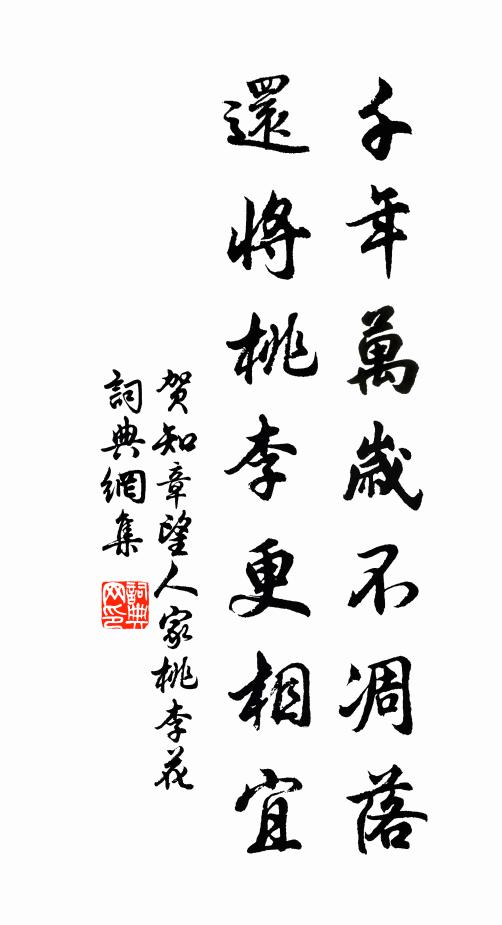 千年萬歲不凋落
還將桃李更相宜
贺知章望人家桃李花
詞典網集
詞典网印